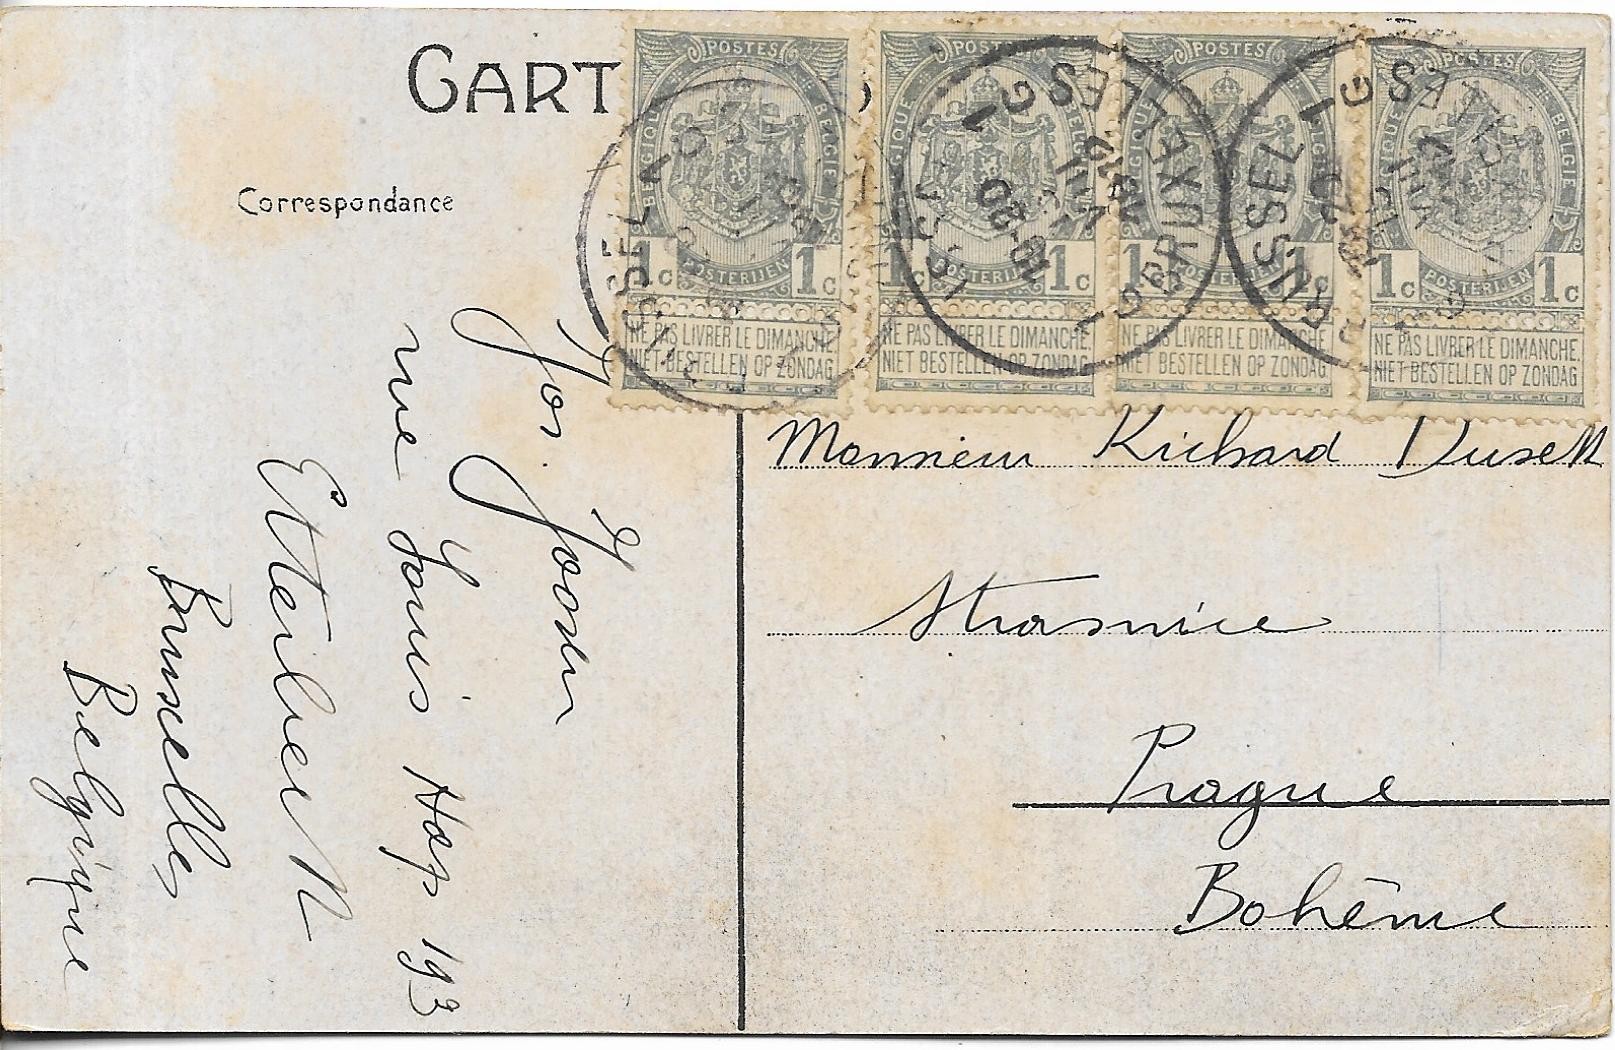 CART
Correspondance
POSTES POSTES POSTES POSTES
BELGIQUE BELGIË
POSTERIJEN POSTERIJEN POSTERIJEN POSTERIJEN
1c 1c 1c 1c 1c 1c 1c 1c
NE PAS LIVRER LE DIMANCHE NE PAS LIVRER LE DIMANCHE. NE PAS LIVRER LE DIMANCHE. NE PAS LIVRER LE DIMANCHE.
NIET BESTELLEN OP ZONDAG NIET BESTELLEN OP ZONDAG NIET BESTELLEN OP ZONDAG NIET BESTELLEN OP ZONDAG
BRUXELLES
BRUSSEL
Jos. Joosen
rue Louis Hap 193
Etterbeek
Bruxelles
Belgique
Monsieur Richard
Strasnice
Prague
Bohême